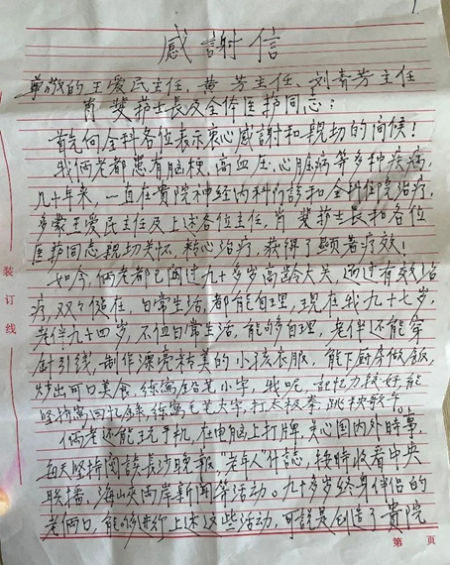 感謝信
尊敬的王爱民主任、黄芳主任、刘青芳主任
肖斐护士長及全体医护同志：
首先向全科各位表示衷心感謝和親切的问候！
我俩老都患有脑梗，高血压，心脏病等多种疾病，
几十年来，一直在貴院神经内科门診和全科住院治疗，
多蒙王爱民主任及上述各位主任，肖斐护士長和各位
医护同志親切关怀，精心治疗，获得了顕著疗效！
如今俩老都已闯过九十多岁高龄大关，通过有效治
疗，双々健在，日常生活，都能自理，現在我九十七岁，
老伴九十四岁，不但日常生活，能够自理，老伴还能穿
針引线，制作漂亮精美的小孩衣服，能下厨房做飯
炒出可口美食，练写铅笔小字，我呢，記忆力較好，能
坚持写回忆録，练写毛笔大字，打太极拳，跳秧歌午。
俩老还能玩手机，在电脑上打牌，关心国内外時事，
每天堅持阅读長沙晚報，"老年人"什誌，按時收看中央
联播，海峡两岸新闻等活动。九十多岁终身伴侣的
老俩口，能够進行上述这些活动，可說是创造了貴院
装订线
第 页